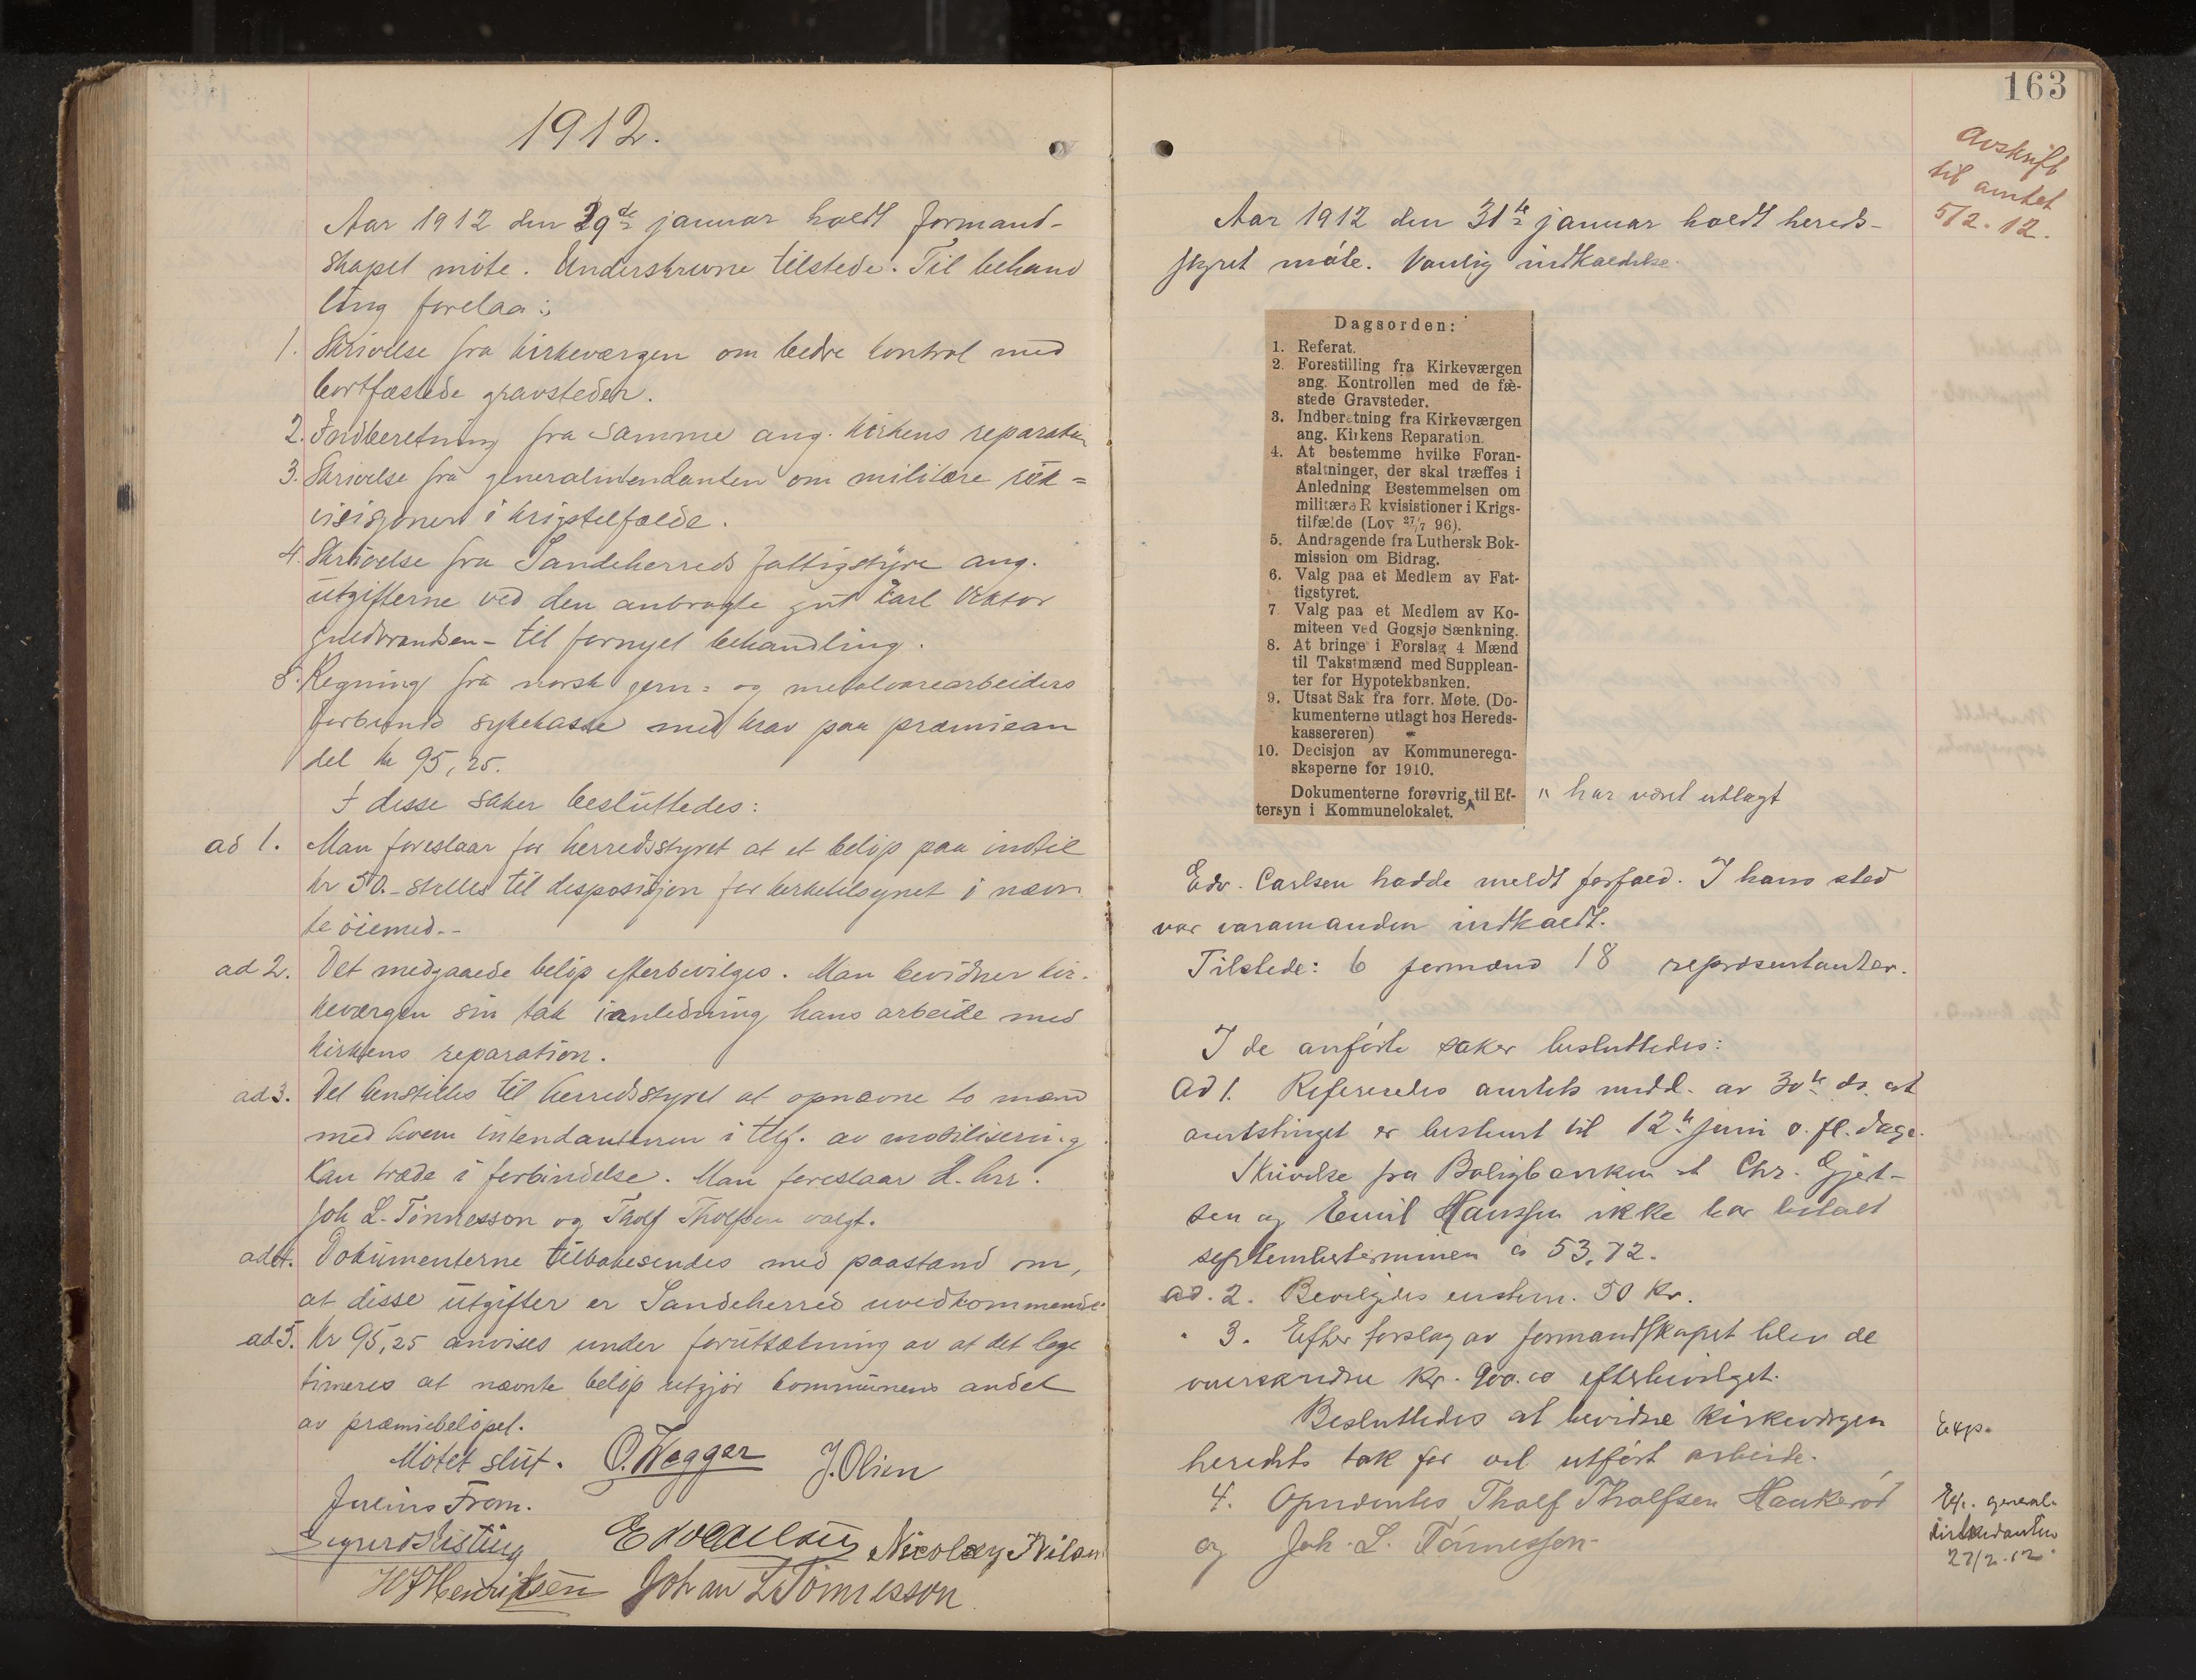 1912.
Aar 1912 den 29de januar holdt formand-
skapet møte. Underskrevne tilstede. Til behand
ling forelaa:
1. Skrivelse fra kirkeværgen om bedre kontrol med
bortfæstede gravsteder.
2. Indberetning fra samme ang. kirkens reparation
3. Skrivelse fra generalintendanten om militære rek=
visisjoner i krigstilfælde.
4. Skrivelse fra Sandeherreds fattigstyre ang.
utgifterne ved den anbragte gut Karl Viktor
Guldbrandsen - til fornyet behandling.
5. Regning fra norsk jern= og metalvarearbeiders
forbunds sykekasse med krav paa præmiean
del kr 95,25.
I disse saker besluttedes:
ad 1. Man foreslaar for herredsstyret at et beløp paa indtil
kr 50.- stilles til disposisjon for kirketilsynet i nævn
te øiemed.-
ad 2. Det medgaaede beløp efterbevilges. Man bevidner kir-
keværgen sin tak i anledning hans arbeide med
kirkens reparation.
ad 3. Det henstilles til herredsstyret at opnævne to mænd
med hvem intendanturen i tilf. av mobilisering
kan træde i forbindelse. Man foreslaar d. hrr.
Joh L. Tønnesson og Tholf Tholfsen valgt.
ad 4. Dokumenterne tilbakesendes med paastand om,
at disse utgifter er Sandeherred uvedkommende.
ad 5. Kr 95,25 anvises under forutsætning av at det legi
timeres at nævnte beløp utgjør kommunens andel
av præmiebeløpet.
Møtet slut. O. Hegger J. Olsen
Julius From.
Sigurd Risting Edv Carlsen Nicolay Nilsen
H. Henriksen Johan L Tønnesson
163
Avskrift
til amtet
5/2. 12.
Aar 1912 den 31te januar holdt hereds-
styret møte. Vanlig indkaldelse.
Dagsorden:
1. Referat.
2. Forestilling fra Kirkeværgen
ang. Kontrollen med de fæ-
stede Gravsteder.
3. Indberetning fra Kirkeværgen
ang. Kirkens Reparation.
4. At bestemme hvilke Foran-
staltninger, der skal træffes i
Anledning Bestemmelsen om
militære R kvisistioner i Krigs-
tilfælde (Lov 27/7 96).
5. Andragende fra Luthersk Bok-
mission om Bidrag.
6. Valg paa et Medlem av Fat-
tigstyret.
7 Valg paa et Medlem av Ko-
miteen ved Gogsjø Sænkning.
8. At bringe i Forslag 4 Mænd
til Takstmænd med Supplean-
ter for Hypotekbanken.
9. Utsat Sak fra forr. Møte. (Do-
kumenterne utlagt hos Hereds-
kassereren)
10. Decisjon av Kommuneregn-
skaperne for 1910.
Dokumenterne forøvrig til Ef-
tersyn i Kommunelokalet.
" har været utlagt
Edv. Carlsen hadde meldt forfald. I hans sted
var varamanden indkaldt.
Tilstede: 6 formænd 18 repræsentanter.
I de anførte saker besluttedes:
Ad 1. Refereredes amtets medd. av 30te ds. at
amtstinget er bestemt til 12te juni o. fl. dage.
Skrivelse fra Boligbanken at Chr. Gjert-
sen og Emil Hanssen ikke har betalt
septemberterminen à 53.72.
ad. 2. Bevilgedes enstem. 50 Kr.
" 3. Efter forslag av formandskapet blev de
overskredne Kr. 900.00 efterbevilget.
Besluttedes at bevidne Kirkeværgen
heredets tak for vel utført arbeide.
Exp.
4. Opnævntes Tholf Tholfsen Haukerød
og Joh. L. Tønnessen-
Exp. general-
intendanten
27/2. 12.